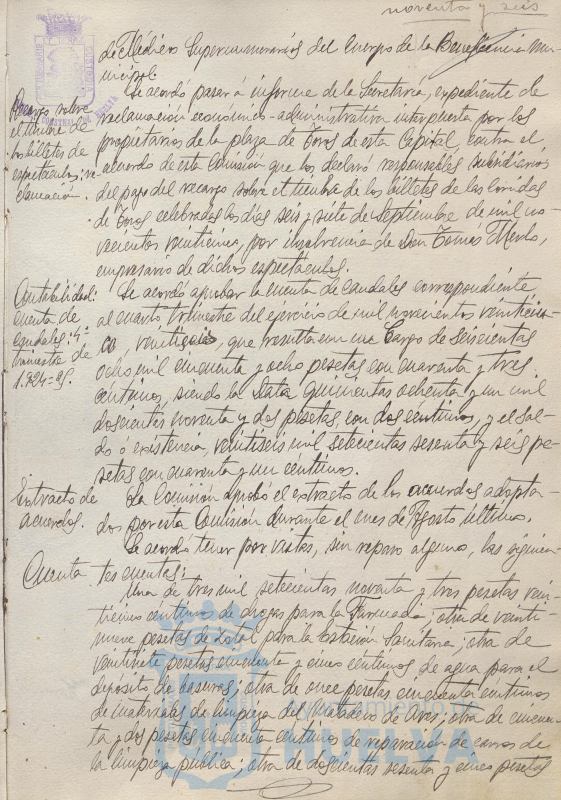 noventa y seis
de Médicos Supernumerarios del Cuerpo de la Beneficencia mu-
nicipal.
Recargo sobre
el timbre de
los billetes de
espectáculos; re-
clamación.
Se acordó pasar á informe de la Secretaría, expediente de
reclamación económico-administrativa interpuesta por los
propietarios de la plaza de Toros de esta Capital, contra el
acuerdo de esta Comisión que los declaró responsables subsidiarios
del pago del recargo sobre el timbre de los billetes de las corridas
de Toros celebradas los días seis y siete de Septiembre de mil no-
vecientos veinticinco, por insolvencia de Don Tomás
empresario de dichos espectáculos.
Contabilidad:
cuenta de
caudales: 4º
trimestre de
1.924=25.
Se acordó aprobar la cuenta de caudales correspondiente
al cuarto trimestre del ejercicio de mil novecientos veinticua-
tro, veinticinco, que resulta con un Cargo de seiscientas
ocho mil cincuenta y ocho pesetas con cuarenta y tres
céntimos, siendo la Data quinientas ochenta y un mil
doscientas noventa y dos pesetas, con dos céntimos, y el sal-
do ó existencia, veintiseis mil setecientas sesenta y seis pe-
setas con cuarenta y un céntimos.
Extracto de
acuerdos.
La Comisión aprobó el extracto de los acuerdos adopta-
dos por esta Comisión durante el mes de Agosto último.
Cuenta
Se acordó tener por vistas, sin reparo alguno, las siguien-
tes cuentas:
Una de tres mil setecientas noventa y tres pesetas vein-
ticinco céntimos de drogas para la Farmacia; otra de veinti-
nueve pesetas de para la Estación Sanitaria; otra de
veintisiete pesetas cincuenta y cinco céntimos de agua para el
depósito de basuras; otra de once pesetas cincuenta céntimos
de materiales de limpieza del Matadero de Aves; otra de cincuen-
ta y dos pesetas cincuenta céntimos de reparación de carros de
la limpieza pública; otra de doscientas sesenta y cinco pesetas
Ayuntamiento de
HUELVA